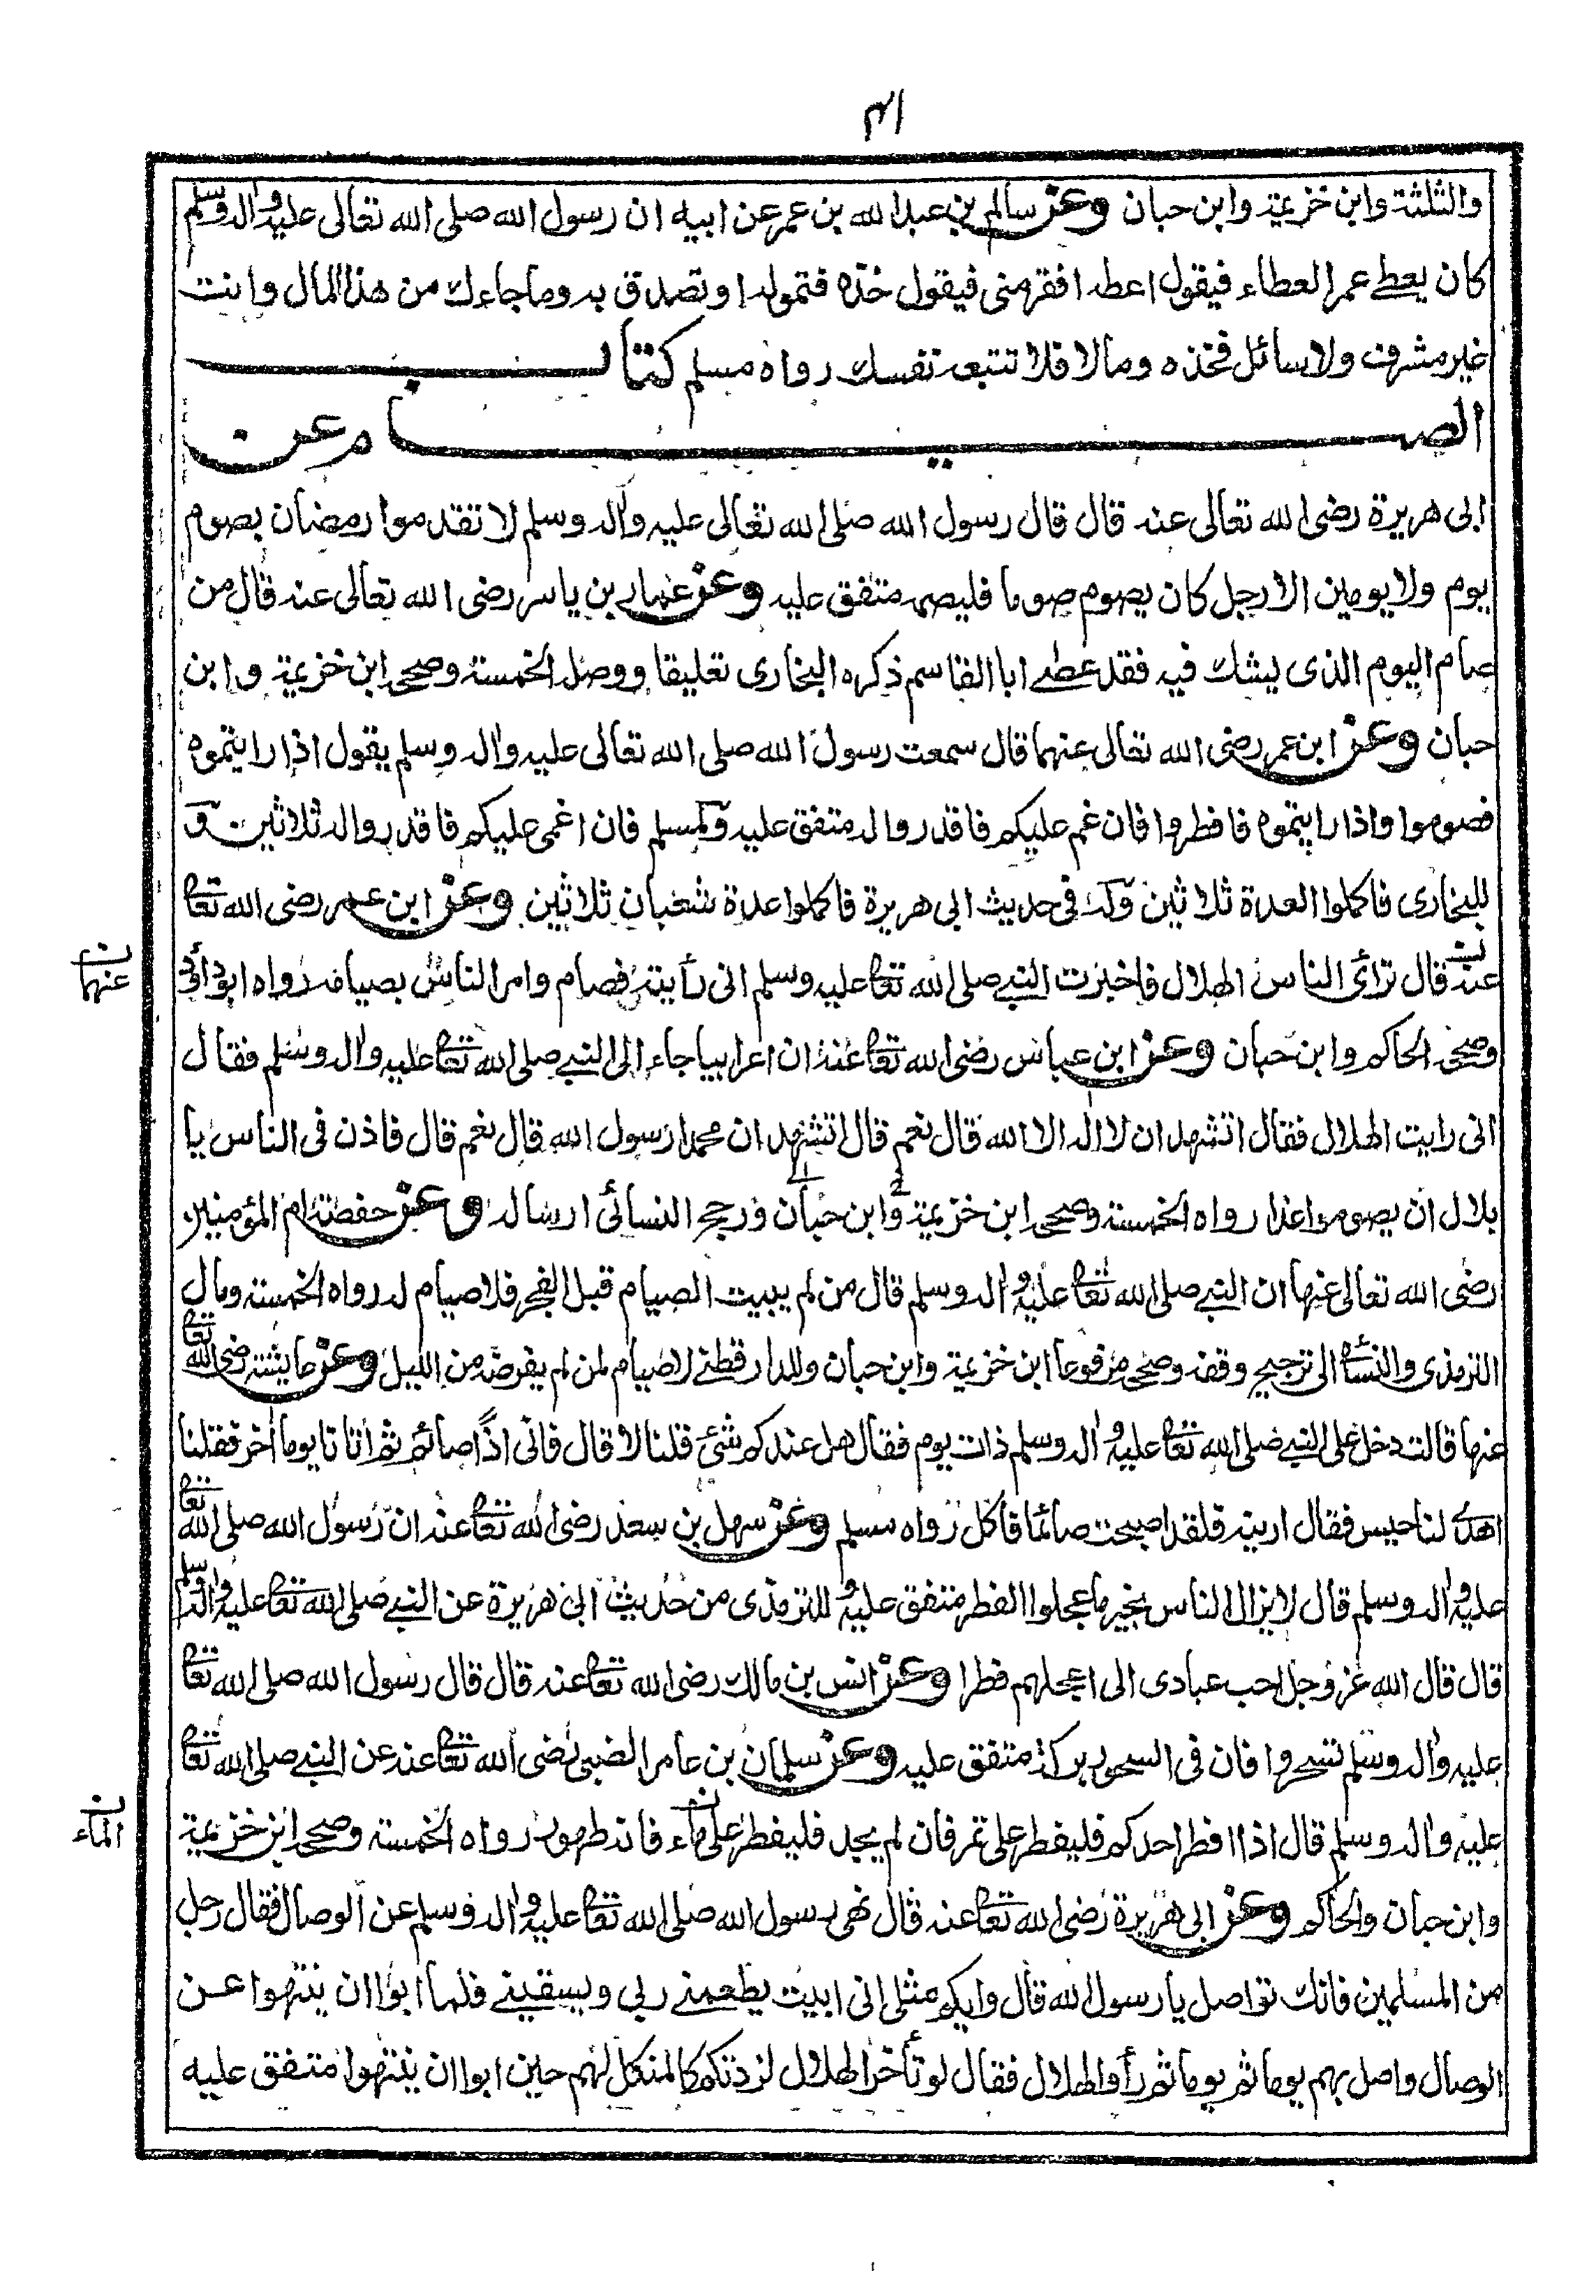 ٨١
والثلثة وابن خزيمة وابن حبان وعن سالم بن عبد الله بن عمر عن ابيه ان رسول الله صلى الله تعالى عليه واله وسلم
كان يعطى عمر العطاء فيقول اعطه افقر منى فيقول خذه فتموله او تصدق به وما جاءك من هذا المال وانت
غير مشرف ولا سائل فخذه وما لا فلا تتبعه نفسك رواه مسلم كتاب
الصيام عن
ابى هريرة رضى الله تعالى عنه قال قال رسول الله صلى الله تعالى عليه واله وسلم لا تقدموا رمضان بصوم
يوم ولا يومين الا رجل كان يصوم صوما فليصمه متفق عليه وعن عمار بن ياسر رضى الله تعالى عنه قال من
صام اليوم الذى يشك فيه فقد عصے ابا القاسم ذكره البخارى تعليقا ووصله الخمسة وصححه ابن خزيمة وابن
حبان وعن ابن عمر رضى الله تعالى عنهما قال سمعت رسول الله صلى الله تعالى عليه واله وسلم يقول اذا رايتموه
فصوموا واذا رايتموه فافطروا فان غم عليكم فاقدروا له متفق عليه ولمسلم فان اغمى عليكم فاقدروا له ثلاثين و
للبخارى فاكملوا العدة ثلاثين وله فى حديث ابى هريرة فاكملوا عدة شعبان ثلاثين وعن ابن عمر رضى الله تعا
عنه قال ترائى الناس الهلال فاخبرت النبے صلى الله تعا عليه وسلم انى رأيته فصام وامر الناس بصيامه رواه ابو داؤد
عنهما
وصححه الحاكم وابن حبان وعن ابن عباس رضى الله تعا عنه ان اعرابيا جاء الى النبے صلى الله تعا عليه واله وسلم فقال
انى رايت الهلال فقال اتشهد ان لا اله الا الله قال نعم قال اتشهد ان محمدا رسول الله قال نعم قال فاذن فى الناس يا
بلال ان يصوموا غدا رواه الخمسة وصححه ابن خزيمة وابن حبان ورجح النسائى ارساله وعن حفصة ام المؤمنين
رضى الله تعالى عنها ان النبے صلى الله تعا عليه واله وسلم قال من لم يبيت الصيام قبل الفجر فلا صيام له رواه الخمسة ومال
الترمذى والنسا الى ترجيح وقفه وصححه مرفوعا ابن خزيمة وابن حبان وللدارقطنے لا صيام لمن لم يفرضه من الليل وعن عايشة رضى الله تعا
عنها قالت دخل على النبے صلى الله تعا عليه واله وسلم ذات يوم فقال هل عندكم شئ قلنا لا قال فانى اذًا صائم ثم اتانا يوما اخر فقلنا
اهدے لنا حيس فقال ارينه فلقد اصبحت صائما فاكل رواه مسلم وعن سهل بن سعد رضى الله تعا عنه ان رسول الله صلى الله تعا
عليه واله وسلم قال لا يزال الناس بخير ما عجلوا الفطر متفق عليه وللترمذى من حديث ابى هريرة عن النبے صلى الله تعا عليه واله وسلم
قال قال الله عز وجل احب عبادى الى اعجلهم فطرا وعن انس بن مالك رضى الله تعا عنه قال قال رسول الله صلى الله تعا
عليه واله وسلم تسحروا فان فى السحور بركة متفق عليه وعن سلمان بن عامر الضبى رضى الله تعا عنه عن النبے صلى الله تعا
عليه واله وسلم قال اذا افطر احدكم فليفطر على تمر فان لم يجد فليفطر على ماء فانه طهور رواه الخمسة وصححه ابن خزيمة
الماء
وابن حبان والحاكم وعن ابى هريرة رضى الله تعا عنه قال نهى رسول الله صلى الله تعا عليه واله وسلم عن الوصال فقال رجل
من المسلمين فانك تواصل يا رسول الله قال وايكم مثلى انى ابيت يطعمنے ربى ويسقينے فلما ابوا ان ينتهوا عن
الوصال واصل بهم يوما ثم يوما ثم رأوا الهلال فقال لو تأخر الهلال لزدتكم كالمنكل لهم حين ابوا ان ينتهوا متفق عليه